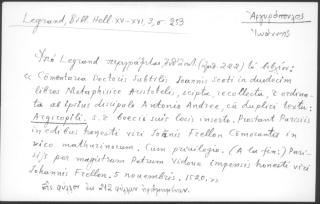 Legrand, Bibl. Hell. XV-XVI, 3, σ. 253
Ἀργυρόπουλος
Ἰωάννης
Ὑπὸ Legrand περιγράφεται (ἀριθ. 222) τὸ βιβλίον:
« Comentaria Doctoris Subtilis Joannis Scoti in duodecim
libros Metaphisice Aristotelis, recollecta, et ordina-
ta ab ipsius discipulo Antonio Andree, cū duplici textu:
Argiropili, s. et boecii suis locis inserto. Prostant Parisiis
in edibus honesti viri Joānis Frellon Comorantis in
vico mathurinorum. Cum privilegio. (A la fin:) Pari-
sijs per magistram Petrum Vidoue impensis honesti viri
Johannis Frellon. 5 novembris, 1520. »
Εἰς φύλλον ἐκ 212 φύλλων ἠριθμημένων.